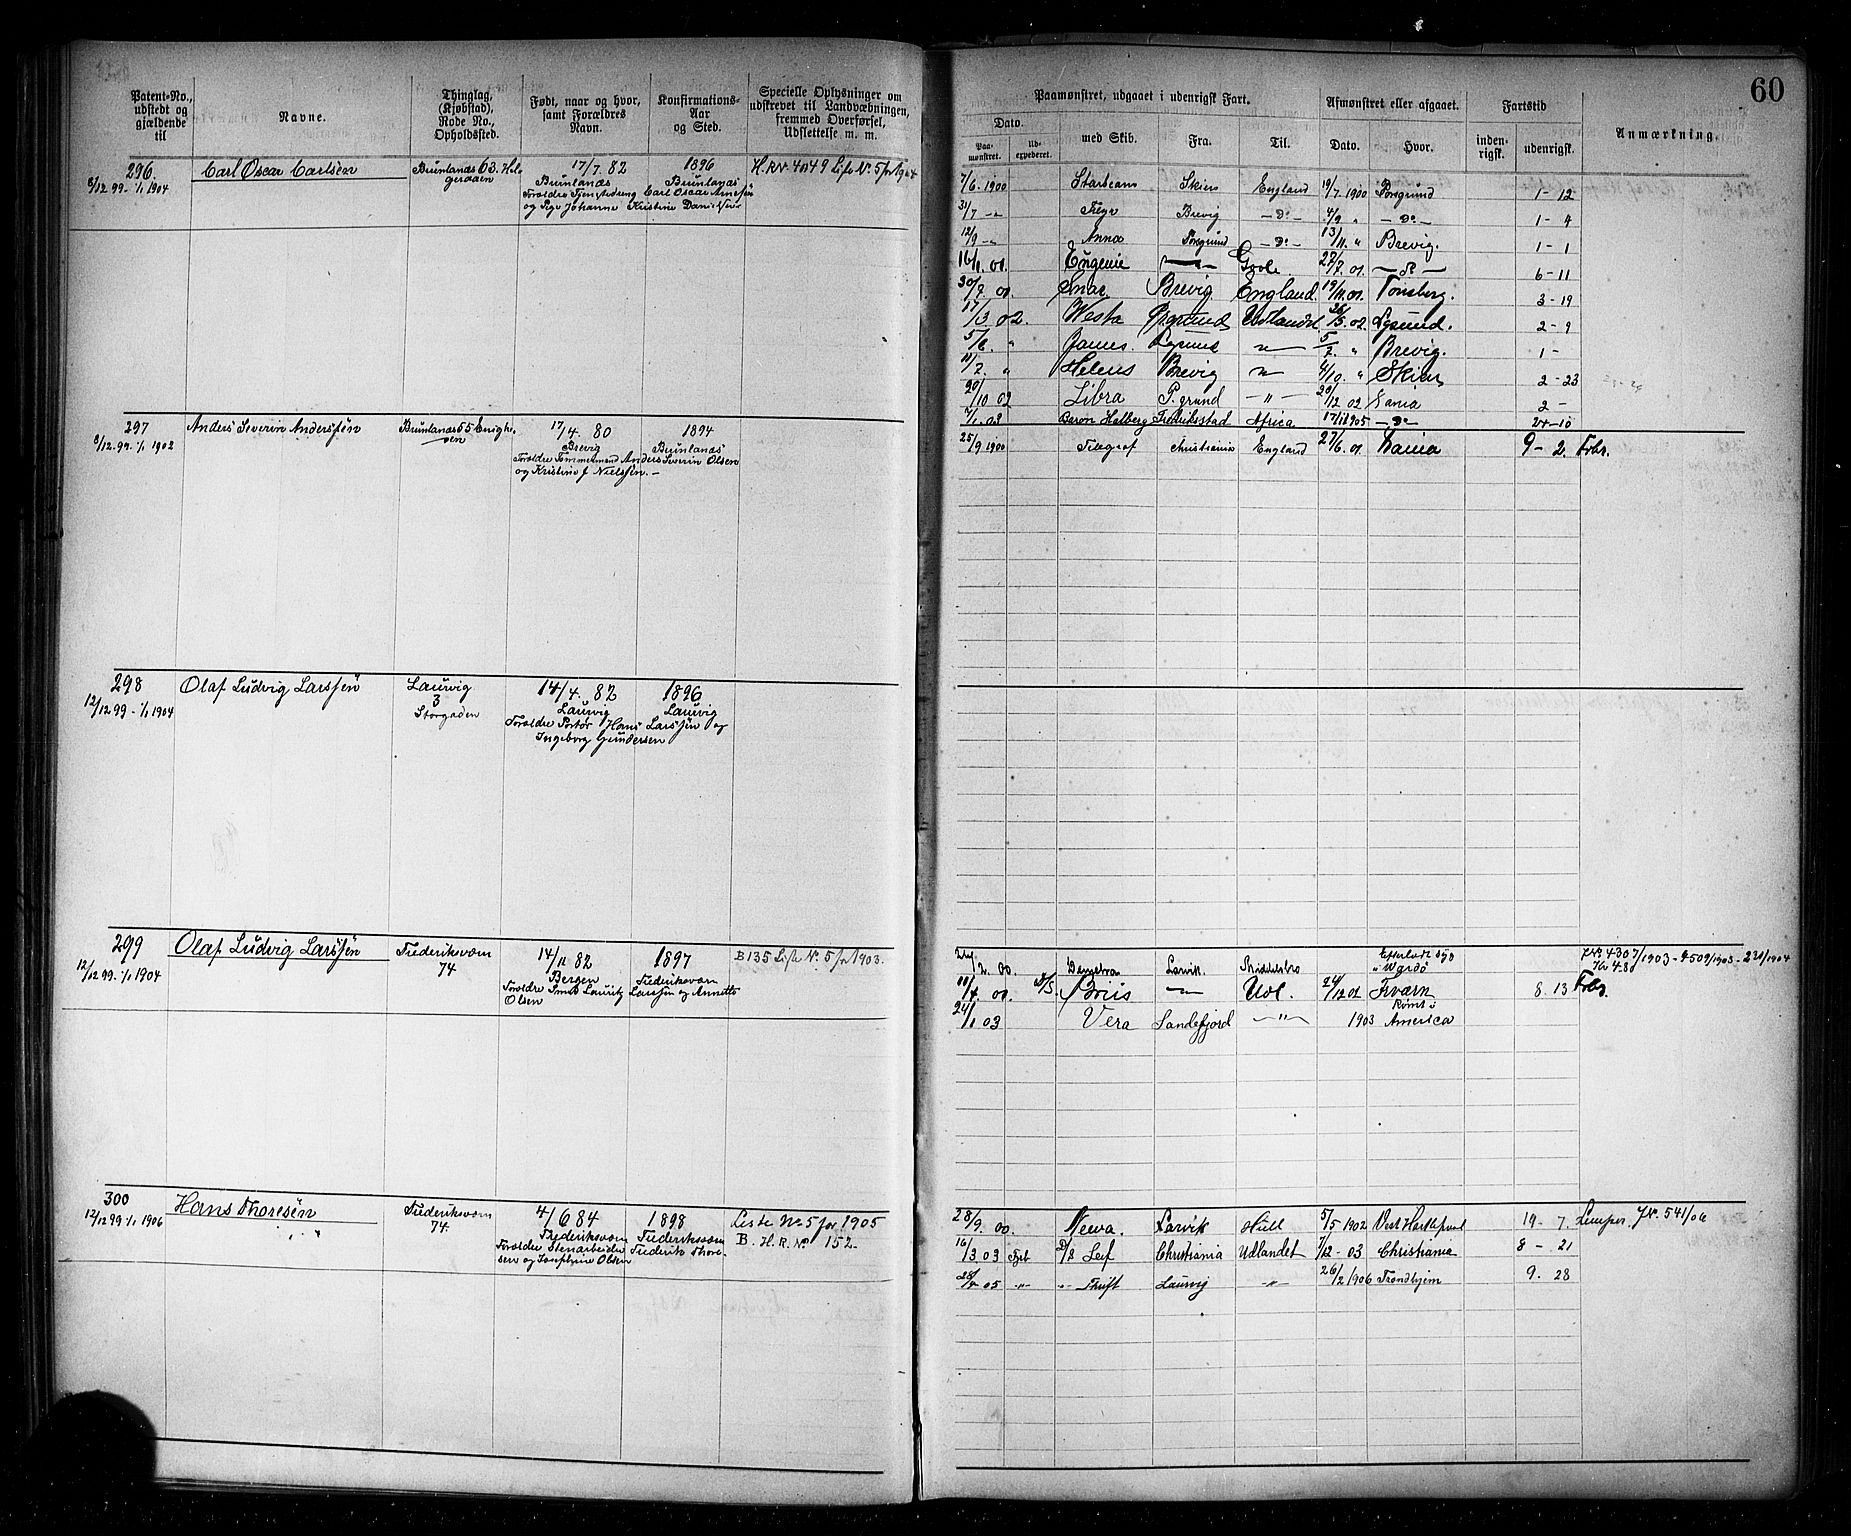 60
Patent-No., udstedt og gjældende til
Navne.
Thinglag, (Kjøbstad), Rode No., Opholdssted.
Født, naar og hvor, samt Forældres Navn.
Konfirmations-Aar og Sted.
Specielle Oplysninger om udskrevet til Landværnet, fremmed Overførsel, Udslettelse m. m.
Paamønstret, udgaaet i udenrigsk Fart.
Afmønstret eller afgaaet.
Fartstid
Anmærkning.
Dato.
med Skib.
Fra.
Til.
Dato.
Hvor.
inden-rigsk.
udenrigsk.
Paa-mønstret.
Ud-expederet.
296.
8/12 99. 1/1 1904
Carl Oscar Carlsen
Brunlanæs 63.
17/7. 82
Brunlanæs
1896
Brunlanæs
og Pige Johanne Kristine
Liste N. 5 for 1904
7/6. 1900 Skien England 19/7. 1900 Porsgrund 1 - 12
31/7 - " Freyr Brevig - Do - 4/9 " - Do - 1 - 4
12/9 - " Anna Porsgrund - Do - 13/11. " Brevig. 1 - 1
16/1. 01. Eugenie Goole 27/7. 01. 6 - 11
30/7. 01. Brevig England. 19/11. 01. Tønsberg. 3 - 19
17/3. 02. Westa Udlandet 26/5. 02. 2 - 9
5/6. " James. 5/7. " Brevig. 1 -
11/7. " Helens Brevig 4/10. " Skien 2 - 23
20/10 02 Libra P. grund - " - 20/12 02 2 -
7/1. 03 Baron Holberg Fredriksstad Africa 17/11 1905 - Do - 24 - 10
297
8/12. 99. 1/1 1902
Anders Severin Anderssen
Brunlanæs 65
17/4. 80
Brevig
Forældre Tømmermand Anders Severin Olsen
og Kristine J. Nielssen. -
1894
Brunlanæs
25/9 1900 Telegraf Christiania England 27/6. 01. 9 - 2. Frbr.
298
12/12 99 - 1/1 1904
Olaf Ludvig Larssen
Laurvig
3
Storgaden
14/4. 82
Laurvig
Forældre Portør Hans Larssen og
Ingeborg Gundersen
1896
Laurvig
299
12/12 99. 1/1 1904
Olaf Ludvig Larssen
Frederiksværn
74
14/11 82
Bergen
Forældre Smed Lauritz Larssen og Annette
Olsen
1897
Frederiksværn
B 135 Liste N. 5 for 1903.
2. 00. Larvik. Efterladt syg
i Wardø
11/4. 01. Udl. 24/12 01 8. 13 Frbr.
24/1 03 Vera Sandefjord - " - 1903 Rømt i
America
300
12/12 99 1/1 1906
Hans Thoresen
Frederiksværn
74.
4/6 84
Frederiksværn
Forældre Stenarbeider Frederik Thore-
sen og Josephine Olsen
1898
Frederiksværn
Liste No 5 for 1905
B. H. R. No 152.
28/9. 00. Newa. Larvik Hull 5/5 1902 Vest Hartlepool 19 - 7. J.N. 541/06
16/3. 03 D/S Leif Christiania Udlandet 7/12 - 03 Christiania 8 - 21
05 " " Thrift Laurvig - " - 26/2 1906 Trondhjem 9. 28